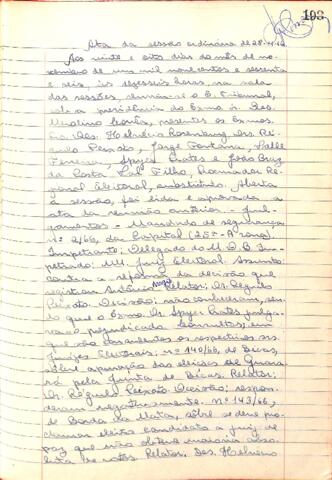 193
Ata da sessão ordinária de 28.11.66
Aos vinte e oito dias do mês de no-
vembro de um mil novecentos e sessenta
e seis, às dezesseis horas, na sala
das sessões, reuniu-se o E. Tribunal,
sob a presidência do Exmo. Sr. Des.
presentes os Exmos.
Srs. Des. Helvécio Rosenburg, Drs. Ré-
gulo Peixoto, Jorge Fontana, Valle
Ferreira, Spyer Prates e João Braz
da Costa Val Filho, Procurador Re-
gional Eleitoral, substituto. Aberta
a sessão, foi lida e aprovada a
ata da reunião anterior. - Jul-
gamentos - Mandado de segurança
nº 2/66, da Capital (25ª zona).
Impetrante: Delegado do M.D.B. Im-
petrado: MM. Juiz Eleitoral. Assunto:
contra a reforma da decisão que
Relator: Dr. Régulo
Peixoto. Decisão: não conheceram, sen-
do que o Exmo. Dr. Spyer Prates julga-
va-o prejudicado. Consultas, em
que são consulentes os respectivos srs.
Juízes Eleitorais: nº 140/66, de Bicas,
sôbre apuração das eleições de Guara-
rá pela Junta de Bicas. Relator:
Dr. Régulo Peixoto. Decisão: respon-
deram negativamente. nº 143/66,
de Borda da Mata, sôbre se deve pro-
clamar eleito candidato a juiz de
paz que não obteve maioria abso-
luta de votos. Relator: Des. Helvécio